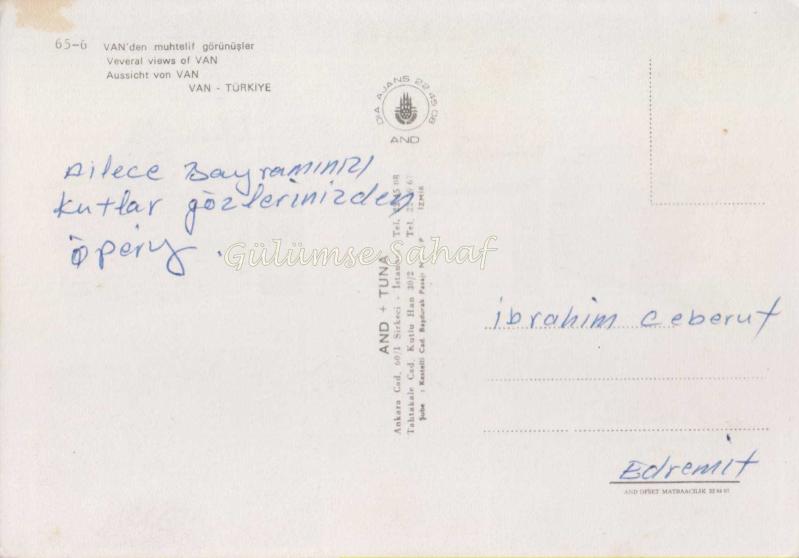 65-6 VAN'den muhtelif görünüşler
Veveral views of VAN
Aussicht von VAN
VAN - TÜRKİYE
DİA AJANS 22 45 08
AND
Ailece Bayramınızı
kutlar gözlerinizden
öperiz.
Gülümse Sahaf
AND + TUNA
Ankara Cad. 60/1 Sirkeci - İstanbul Tel.
Tahtakale Cad. Kutlu Han 30/2 Tel.
Şube : Kestelli Cad. Başdurak Pasajı İZMİR
ibrahim Ceberut
Edremit
AND OFSET MATBAACILIK